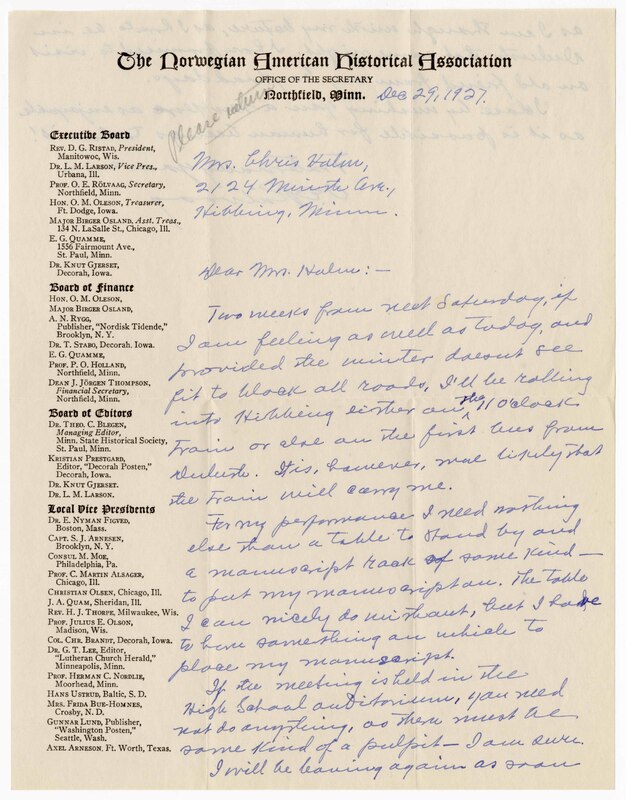 The Norwegian American Historical Association
OFFICE OF THE SECRETARY
Northfield, Minn. Dec 29, 1927.
Please return
Executive Board
REV. D. G. RISTAD, President,
Manitowoc, Wis.
DR. L. M. LARSON, Vice Pres.,
Urbana, Ill.
PROF. O. E. RÖLVAAG, Secretary,
Northfield, Minn.
HON. O. M. OLESON, Treasurer,
Ft. Dodge, Iowa.
MAJOR BIRGER OSLAND, Asst. Treas.,
134 N. LaSalle St., Chicago, Ill.
E. G. QUAMME,
1556 Fairmount Ave.,
St. Paul, Minn.
DR. KNUT GJERSET,
Decorah, Iowa.
Board of Finance
HON. O. M. OLESON,
MAJOR BIRGER OSLAND,
A. N. RYGG,
Publisher, "Nordisk Tidende,"
Brooklyn, N. Y.
DR. T. STABO, Decorah, Iowa.
E. G. QUAMME,
PROF. P. O. HOLLAND,
Northfield, Minn.
DEAN J. JÖRGEN THOMPSON,
Financial Secretary,
Northfield, Minn.
Board of Editors
DR. THEO. C. BLEGEN,
Managing Editor,
Minn. State Historical Society,
St. Paul, Minn.
KRISTIAN PRESTGARD,
Editor, "Decorah Posten,"
Decorah, Iowa.
DR. KNUT GJERSET.
DR. L. M. LARSON.
Local Vice Presidents
DR. E. NYMAN FIGVED,
Boston, Mass.
CAPT. S. J. ARNESEN,
Brooklyn, N. Y.
CONSUL M. MOE,
Philadelphia, Pa.
PROF. C. MARTIN ALSAGER,
Chicago, Ill.
CHRISTIAN OLSEN, Chicago, Ill.
J. A. QUAM, Sheridan, Ill.
REV. H. J. THORPE, Milwaukee, Wis.
PROF. JULIUS E. OLSON,
Madison, Wis.
COL. CHR. BRANDT, Decorah, Iowa.
DR. G. T. LEE, Editor,
"Lutheran Church Herald,"
Minneapolis, Minn.
PROF. HERMAN C. NORDLIE,
Moorhead, Minn.
HANS USTRUD, Baltic, S. D.
MRS. FRIDA BUE-HOMNES,
Crosby, N. D.
GUNNAR LUND, Publisher,
"Washington Posten,"
Seattle, Wash.
AXEL ARNESON, Ft. Worth, Texas.
Mrs. Chris Halm,
2124 Minnste Ave.,
Hibbing, Minn.
Dear Mrs. Halm:—
Two weeks from next Saturday, if
I am feeling as well as today, and
provided the winter doesnt see
fit to block all roads, I'll be rolling
into Hibbing either on the 11 o'clock
train or else on the first bus from
Duluth. It is, however, most likely that
the train will carry me.
For my performance I need nothing
else than a table to stand by and
a manuscript rack of some kind—
to put my manuscript on. The table
I can nicely do without, but I have
to have something on which to
place my manuscript.
If the meeting is held in the
High School auditorium, you need
not do anything, as there must be
some kind of a pulpit— I am sure.
I will be leaving again as soon